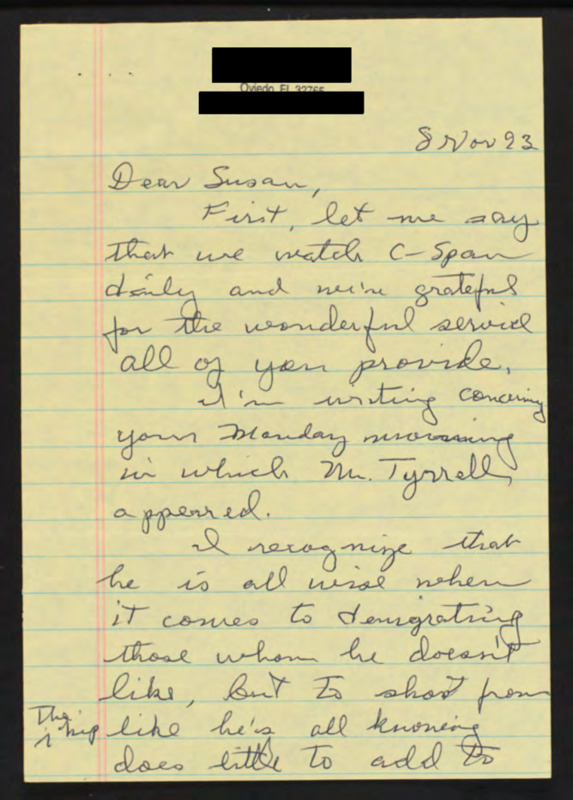 Oviedo, FL 32765
8 Nov 93
Dear Susan,
First, let me say
that we watch C-Span
daily and we're grateful
for the wonderful service
all of you provide.
I'm writing concerning
your Monday morning
in which Mr. Tyrrell,
appeared.
I recognize that
he is all wise when
it comes to denigrating
those whom he doesn't
like, but to shoot from
The hip like he's all knowing
does little to add to